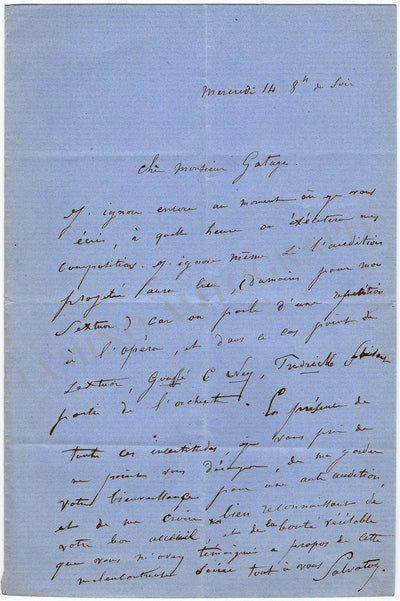 Mercredi 14 8h du Soir
Cher Monsieur Gatayes.
J'ignore encore au moment où je vous
écris, à quelle heure on éxécutera mes
compositions. J'ignore même si l'audition
projetée aura lieu, (du moins pour mon
Sextuor) car on parle d'une répétition
à l'opéra, et dans ce cas point de
Sextuor, Gouffé &
partie de l'orchest. En présence de
toutes ces incertitudes, je vous prie de
ne point vous déranger, de me garder
votre bienveillance pour une autre audition,
et de me croire bien reconnaissant de
votre bon accueil et de la bonté véritable
que vous m'avez témoignée a propos de cette
malencontreuse soirée tout à vous